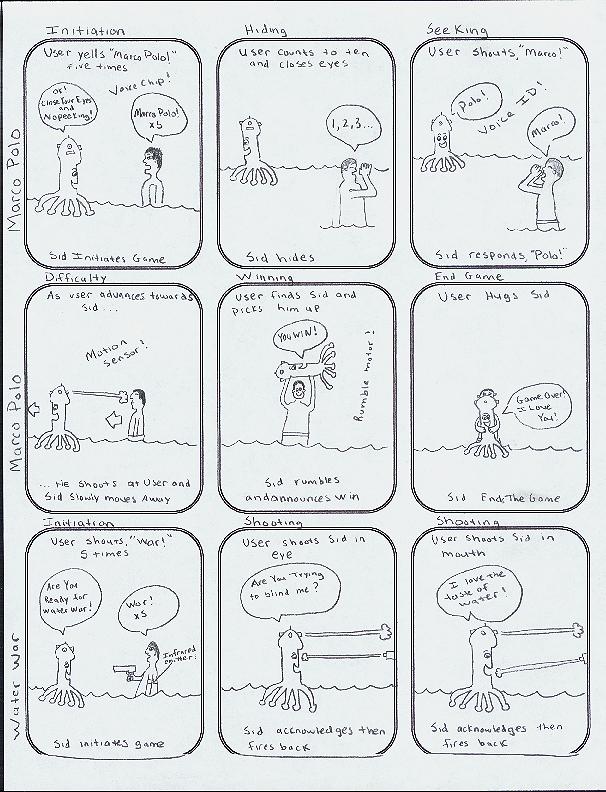 Initiation
Hiding
Seeking
Marco Polo
User yells "Marco Polo!"
five times
Voice Chip!
OK!
Close Your Eyes
and
No peeking!
Marco Polo!
x5
Sid Initiates Game
User counts to ten
and closes eyes
1, 2, 3...
Sid hides
User shouts, "Marco!"
Polo!
Voice ID!
Marco!
Sid responds, "Polo!"
Difficulty
Winning
End Game
Marco Polo
As user advances towards
Sid ...
Motion
Sensor!
... He shoots at User and
Sid Slowly moves Away
User finds Sid and
picks him up
YOU WIN!
Rumble motor!
Sid rumbles
and announces win
User Hugs Sid
Game Over!
I Love
You!
Sid Ends The Game
Initiation
Shooting
Shooting
Water War
User shouts, "War!"
5 times
Are You
Ready for
Water War!
War!
x5
Infrared
emitter!
Sid initiates game
User shoots Sid in
eye
Are You Trying
to blind me?
Sid acknowledges then
fires back
User shoots Sid in
mouth
I love the
taste of
water!
Sid acknowledges then
fires back